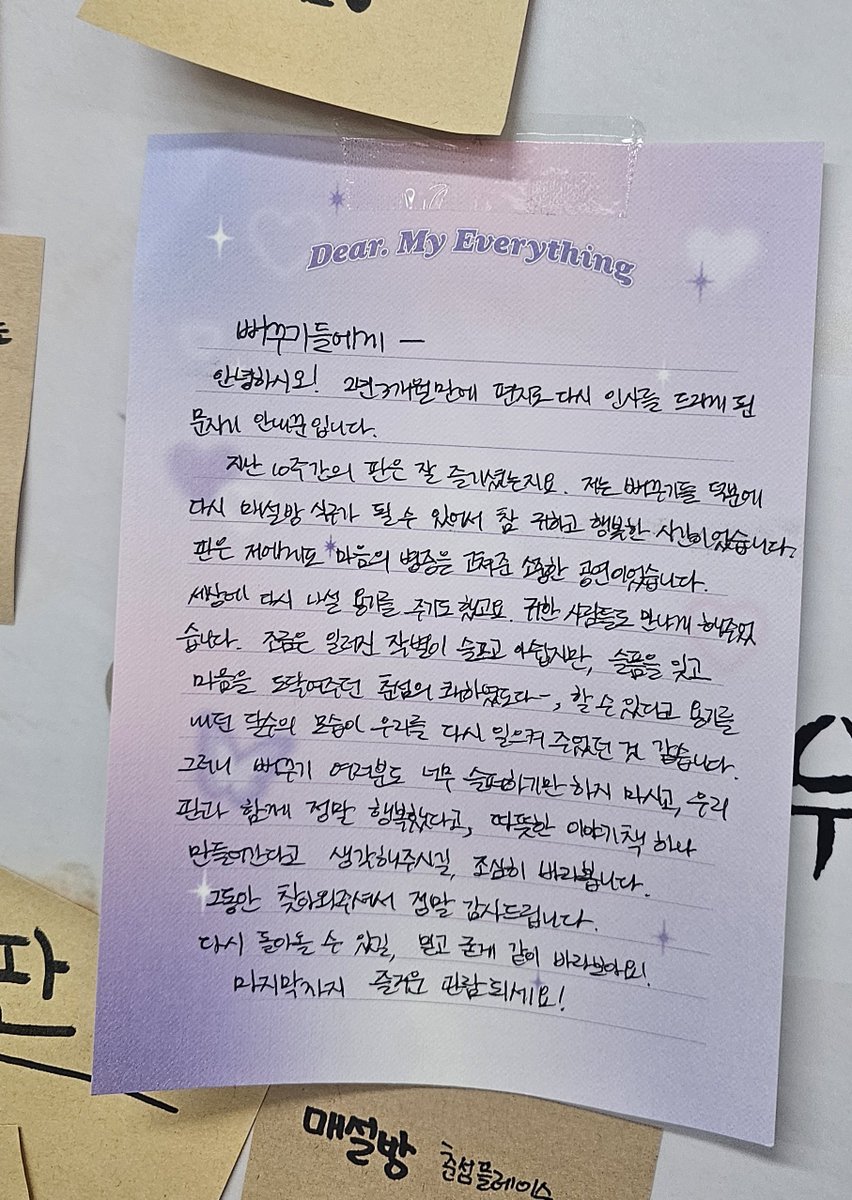 Dear. My Everything
뻐꾸기들에게 —
안녕하시오! 2년 3개월만에 편지로 다시 인사를 드리게 된
문자기 안내꾼입니다.
지난 10주간의 판은 잘 즐기셨는지요. 저는 뻐꾸기들 덕분에
다시 매설방 식구가 될 수 있어서 참 귀하고 행복한 시간이었습니다.
판은 저에게도 마음의 병증을 고쳐준 소중한 공연이었습니다.
세상에 다시 나설 용기를 주기도 했고요. 귀한 사람들도 만나게 해주었
습니다. 조금은 일러진 작별이 슬프고 아쉽지만, 슬픔을 잊고
마음을 도닥여주던 춘섬의 쾌하였도다~, 할 수 있다고 용기를
내던 달수의 모습이 우리를 다시 일으켜 주었던 것 같습니다.
그러니 뻐꾸기 여러분도 너무 슬퍼하기만 하지 마시고, 우리
판과 함께 정말 행복했다고, 따뜻한 이야기책 하나
만들어간다고 생각해주시길, 조심히 바라봅니다.
그동안 찾아와주셔서 정말 감사드립니다.
다시 돌아올 수 있길, 믿고 굳게 같이 바라보아요!
마지막까지 즐거운 판람되세요!
매설방 춘섬플레이스